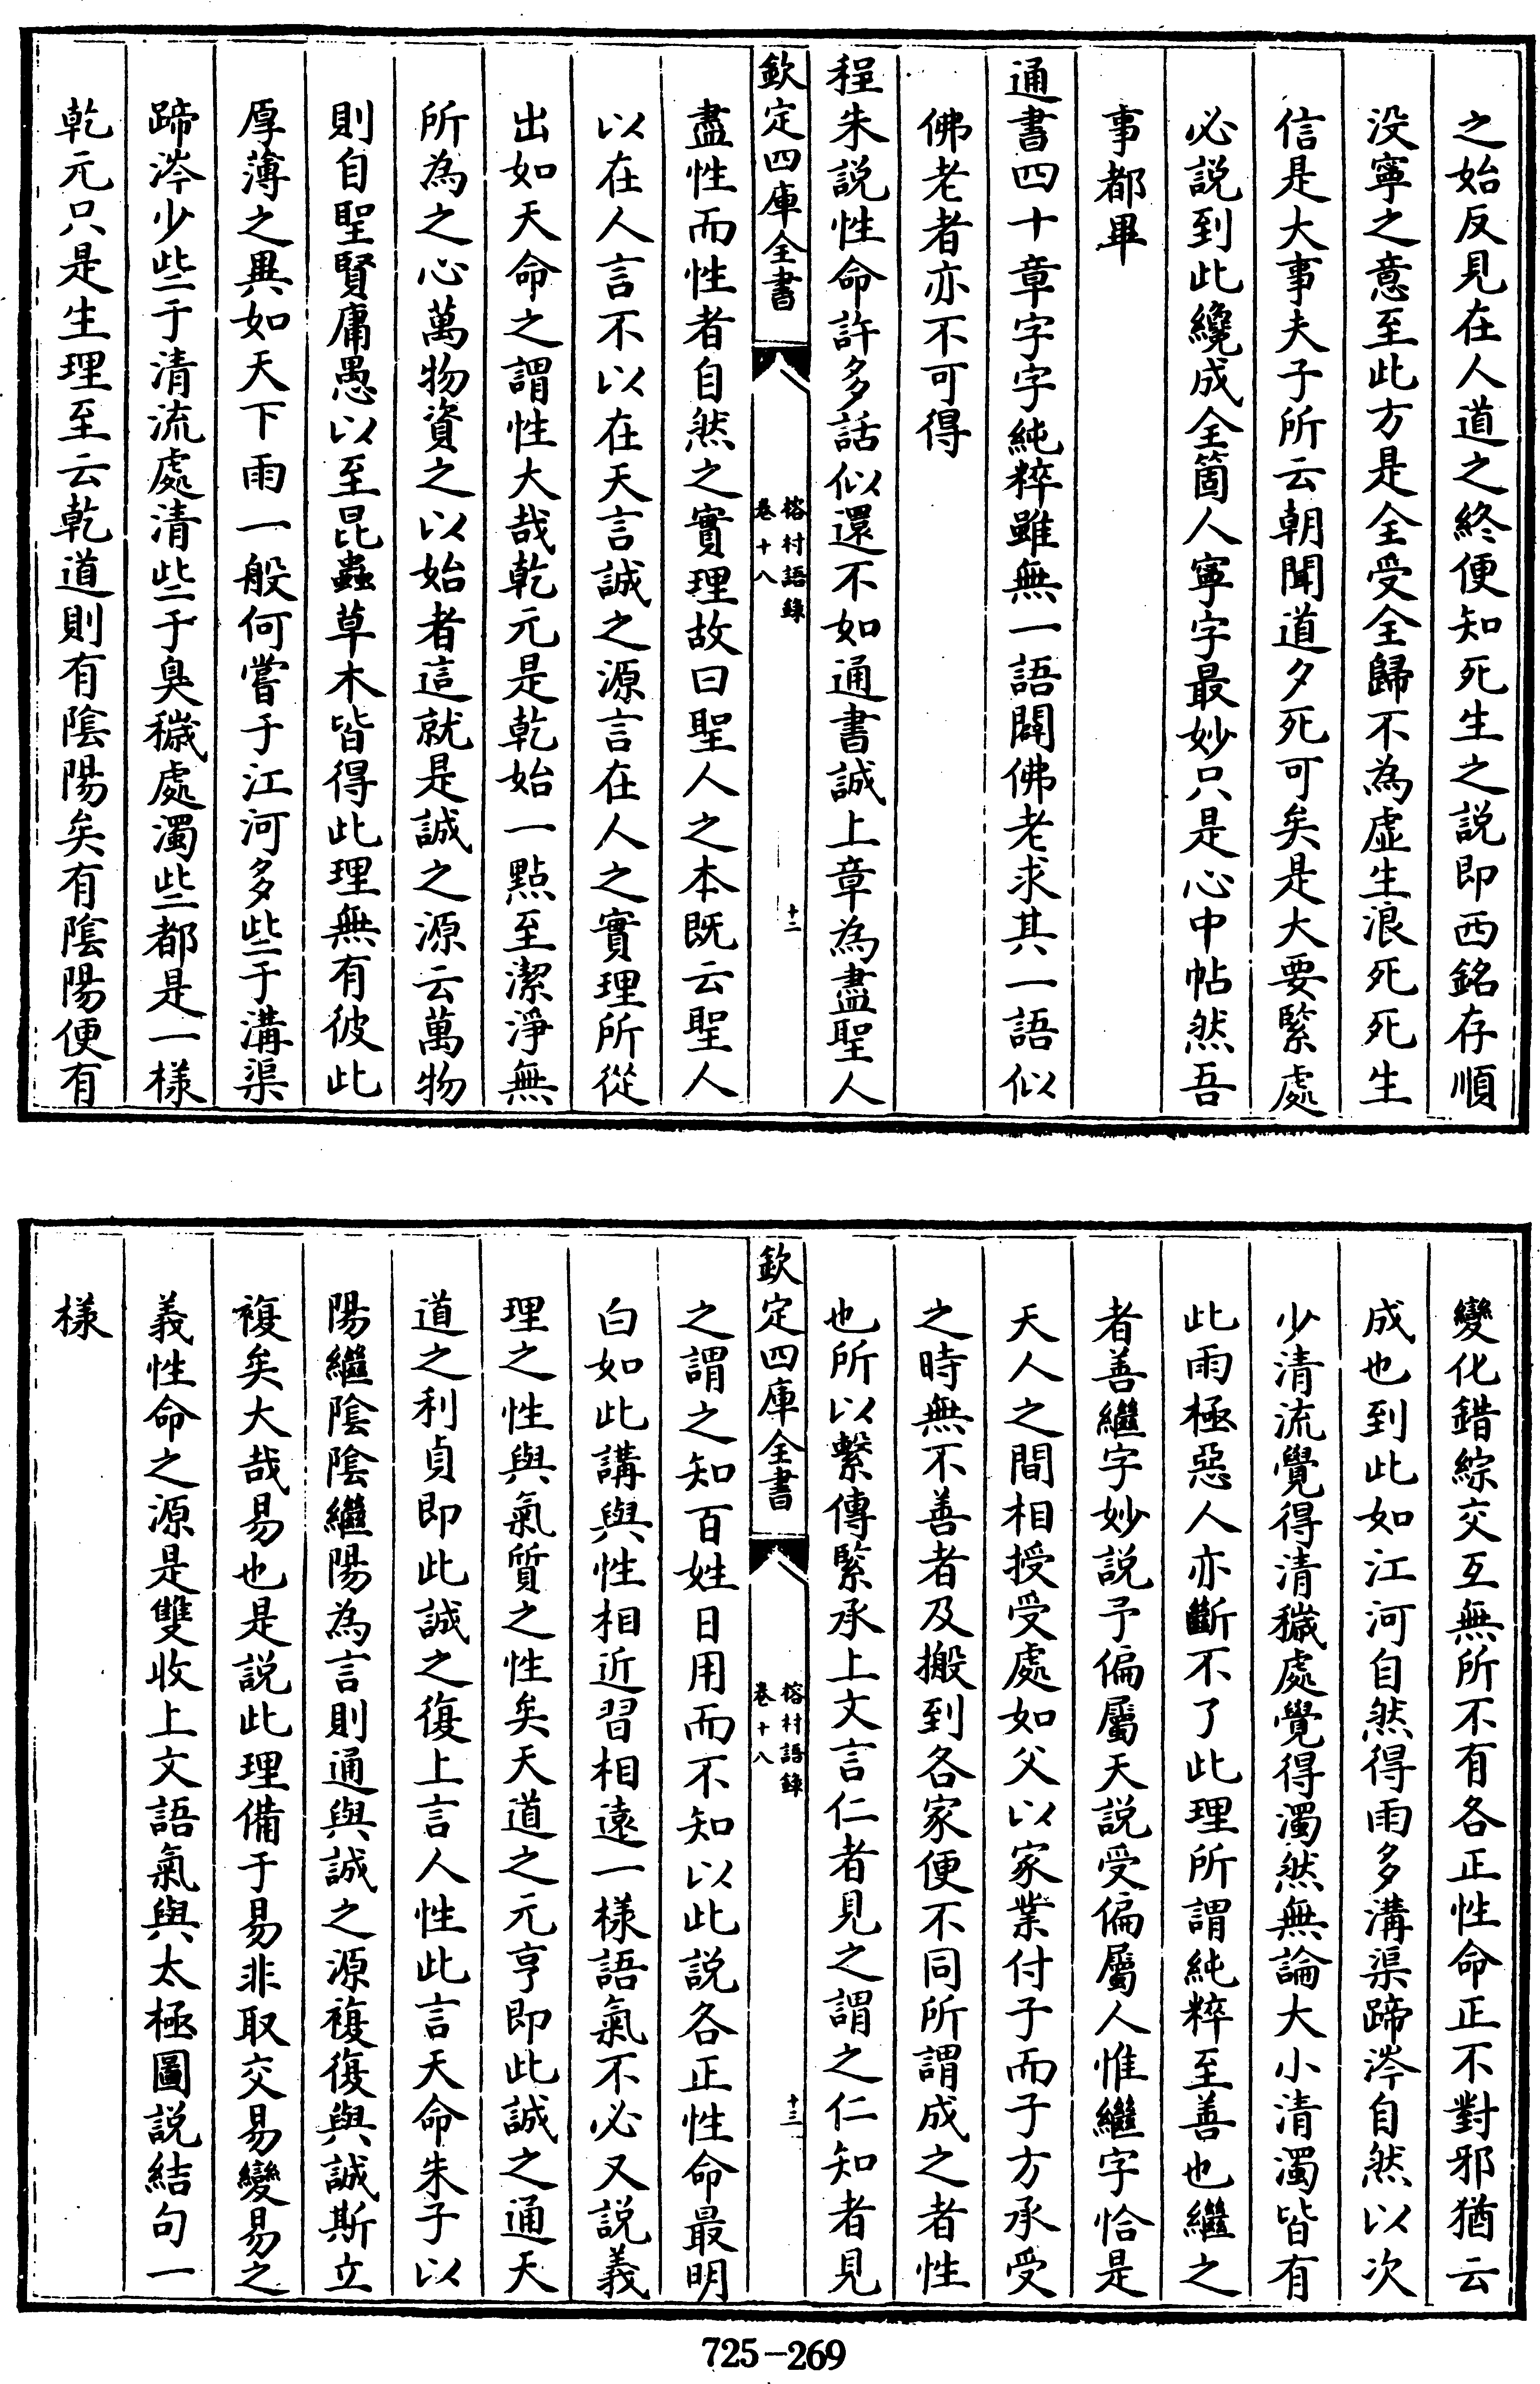 之始反見在人道之終便知死生之説即西銘存順
没寧之意至此方是全受全歸不為虚生浪死死生
信是大事夫子所云朝聞道夕死可矣是大要緊處
必説到此纔成全箇人寧字最妙只是心中帖然吾
事都畢
通書四十章字字純粹雖無一語闢佛老求其一語似
佛老者亦不可得
程朱説性命許多話似還不如通書誠上章為盡聖人
欽定四庫全書
榕村語錄
卷十八
十二
盡性而性者自然之實理故曰聖人之本既云聖人
以在人言不以在天言誠之源言在人之實理所從
出如天命之謂性大哉乾元是乾始一點至潔淨無
所為之心萬物資之以始者這就是誠之源云萬物
則自聖賢庸愚以至昆蟲草木皆得此理無有彼此
厚薄之異如天下雨一般何嘗于江河多些于溝渠
蹄涔少些于清流處清些于臭穢處濁些都是一様
乾元只是生理至云乾道則有陰陽矣有陰陽便有
變化錯綜交互無所不有各正性命正不對邪猶云
成也到此如江河自然得雨多溝渠蹄涔自然以次
少清流覺得清穢處覺得濁然無論大小清濁皆有
此雨極惡人亦斷不了此理所謂純粹至善也繼之
者善繼字妙説予偏屬天説受偏屬人惟繼字恰是
天人之間相授受處如父以家業付子而子方承受
之時無不善者及搬到各家便不同所謂成之者性
也所以繫傳緊承上文言仁者見之謂之仁知者見
欽定四庫全書
榕村語錄
卷十八
十三
之謂之知百姓日用而不知以此説各正性命最明
白如此講與性相近習相遠一様語氣不必又説義
理之性與氣質之性矣天道之元亨即此誠之通天
道之利貞即此誠之復上言人性此言天命朱子以
陽繼陰陰繼陽為言則通與誠之源複復與誠斯立
複矣大哉易也是説此理備于易非取交易變易之
義性命之源是雙收上文語氣與太極圖説結句一
様
725-269